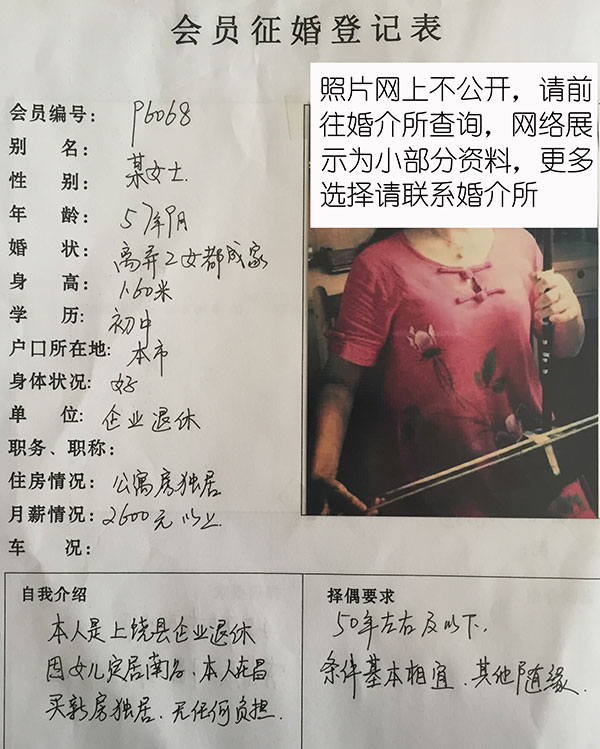 会员征婚登记表
照片网上不公开，请前
往婚介所查询，网络展
示为小部分资料，更多
选择请联系婚介所
会员编号： P6068
别　名：
性　别： 某女士.
年　龄： 57年9月
婚　状： 离异 2女都成家
身　高： 1.60米
学　历： 初中
户口所在地： 本市
身体状况： 好
单　位： 企业退休
职务、职称：
住房情况： 公寓房独居
月薪情况： 2600元以上.
车　况：
自我介绍
本人是上饶县企业退休
因女儿定居南昌、本人在昌
买新房独居. 无任何负担.
择偶要求
50年左右及以下.
条件基本相宜. 其他随缘.